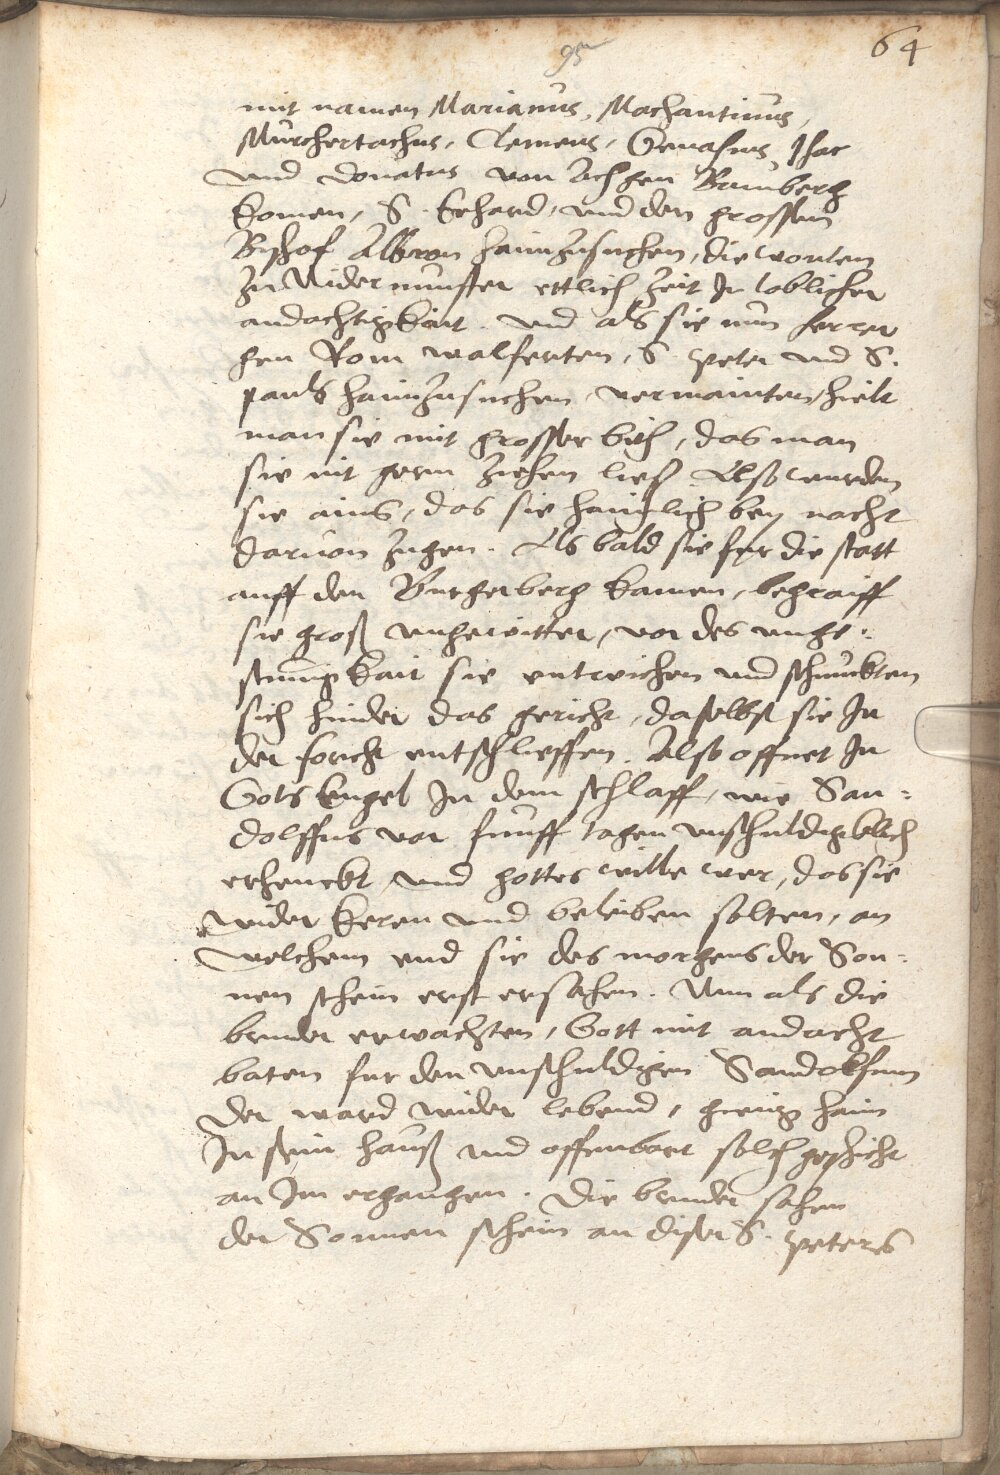 95
64
mit namen Marianus, Machantinus,
Murchertachus, Clemens, Geruasius, Isac
und Donatus von Aich gen Bamberg
komen, S. Erhard, und den grossen
Bischof Albron haimzusuchen, die wonten
zu Nidermunster ettlich zeit In loblicher
andachtigkait. Und als sie nun ferrer
gen Rom walferten, S. Peter und S.
Pauls haimzusuchen vermainten, hielt
man sie mit grosser bith, das man
sie nit gern ziehen ließ. Also wurden
sie ains, das sie haimlich bey nacht
daruon zugen. Als bald sie fur die statt
auff den Burgerberg kamen, begraiff
sie groß ungewitter, vor des unge=
stumigkait sie entwichen und schmuckten
sich hinder das gericht, daselbst sie In
der forcht entschlieffen. Also offnet In
Gots Engel In dem schlaff, wie San=
dolffus vor funff tagen unschuldigklich
erhenckt, und gottes wille wer, das sie
wider keren und beleiben solten, an
welchem end sie des morgens der Son=
nen schein erst ersahen. Nun als die
bruder erwachten, Gott mit andacht
baten fur den unschuldigen Sandolfum
der ward wider lebend, gieng haim
In sein hauß und offenbart solch geschicht
an Im ergangen. Die bruder sahen
der Sonnen schein an diser S. Peters